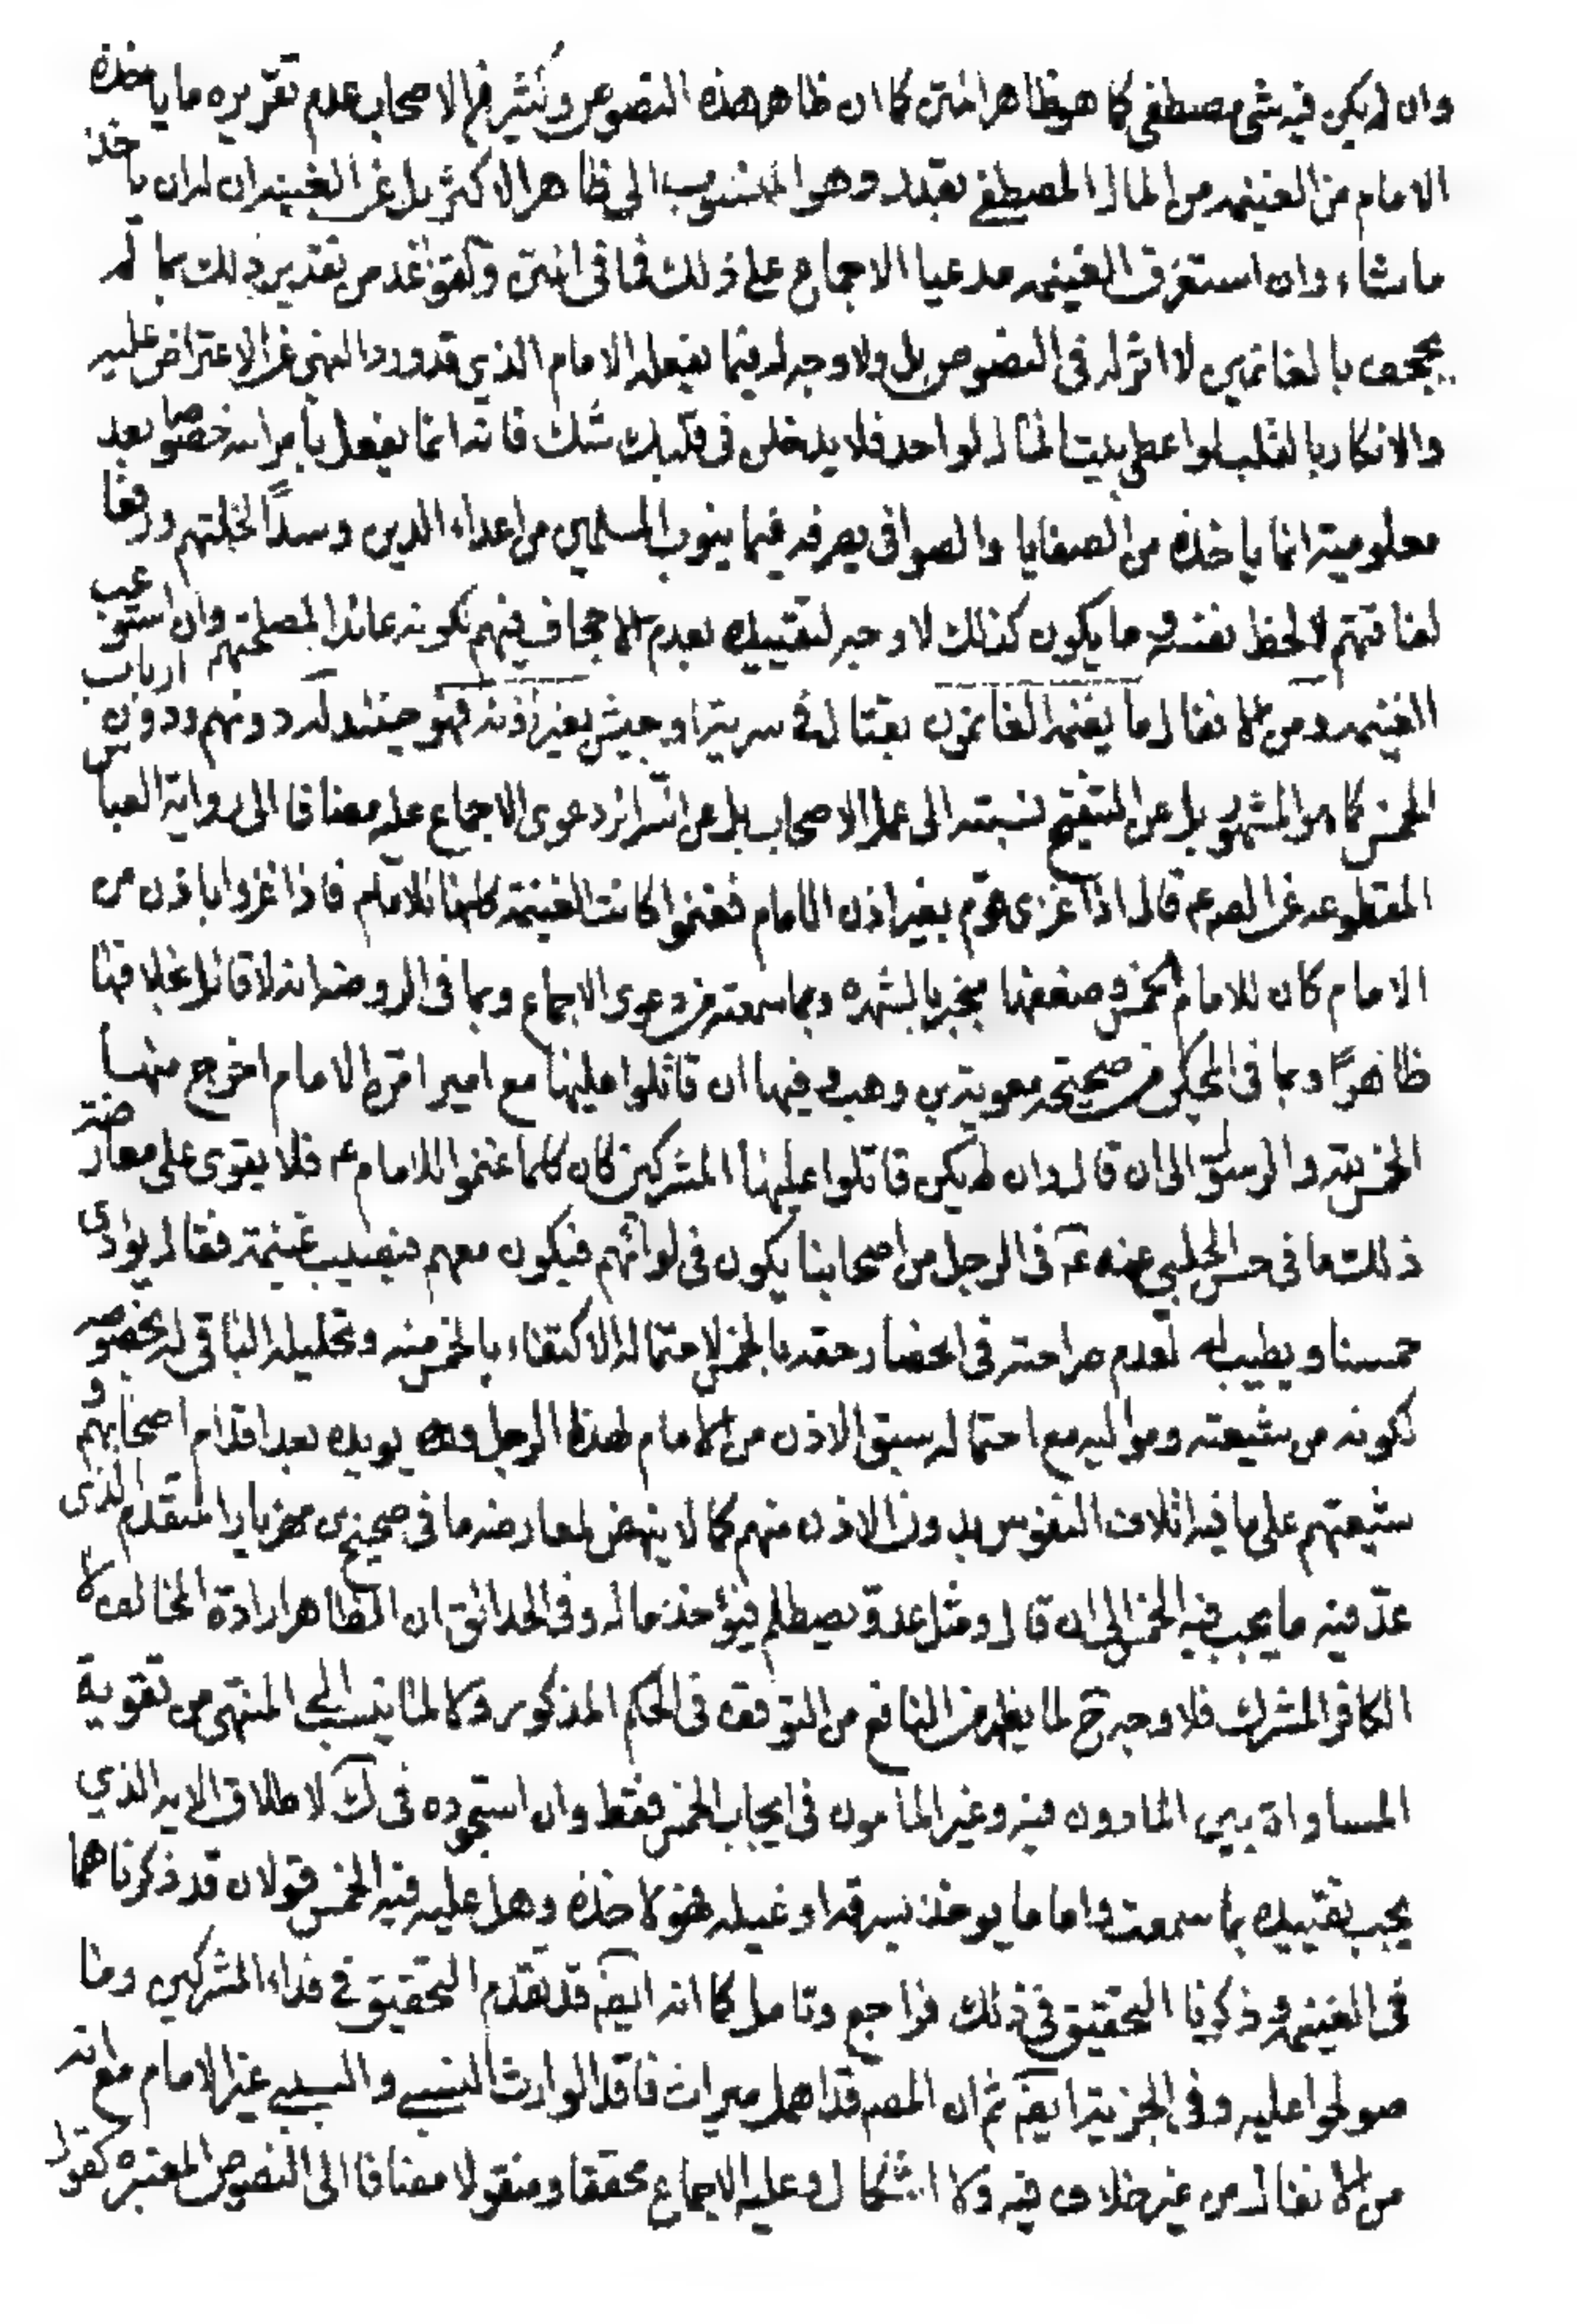 وان لم يكن فيه شئ مصطفى كما هو ظاهر المتن كما ان ظاهر هذه النصوص وكثير من الاصحاب عدم تقريره ما ياخذه
الامام من الغنيمه من المال المصطفى بقيد وهو المنسوب الى ظاهر الاكثر بل عن الغنيه ان له ان ياخذ
ما شاء وان استغرق الغنيمه مدعيا الاجماع على ذلك فما في المتن وكقواعد من تقدير ذلك بما لم
يجحف بالغانمين لا اثر له في النصوص بل ولا وجه له فيما يفعله الامام الذي قد ورد النهى عن الاعتراض عليه
والانكار بالقلب لو اعطى بيت المال لواحد فلا يدخلن في قلبك شك فانه انما يفعل بامر الله خصوصا بعد
معلومية انما ياخذه من الصفايا والصوافى يصرفه فيما ينوب المسلمين من اعداء الدين وسدا لخلتهم ورفعا
لفاقتهم لا لحظ نفسه وما يكون كذلك لا وجه لتقييده بعدم الاجحاف فيهم لكونه عائدا لمصلحتهم وان استوعب
الغنيمه ومن الانفال ما يغنمه الغانمون بقتال في سرية او جيش بغير اذنه فهو حينئذ له دونهم ودون ارباب
الخمس كما هو المشهور بل عن التنقيح نسبته الى عمل الاصحاب بل عن السرائر دعوى الاجماع عليه مضافا الى رواية العباس
المقطوعه عن الصادق ع قال اذا غزى قوم بغير اذن الامام فغنموا كانت الغنيمة كلها للامام فاذا غزوا باذن من
الامام كان للامام الخمس وضعفها منجبر بالشهره وبما سمعته من دعوى الاجماع وبما في الروضه انه لا قائل بخلافها
ظاهرًا وبما في المحكي من صحيحة معوية بن وهب وفيها ان قاتلوا عليها مع امير امره الامام اخرج منها
الخمس لله والرسول الى ان قال وان لم يكن قاتلوا عليها المشركين كان كلما غنموا للامام ع فلا يقوى على معارضة
ذلك ما في حسن الحلبي عنه ع في الرجل من اصحابنا يكون في لوائهم فيكون معهم فيصيب غنيمة فقال يؤدى
خمسنا ويطيب له لعدم صراحته في انحصار حقه بالخمس لاحتمال الاكتفاء بالخمس منه وتحليله الباقي له بخصوصه
لكونه من شيعته ومواليه مع احتمال سبق الاذن من الامام لهذا الرجل وقد يؤيده بعد اقدام اصحابهم و
شيعتهم على ما فيه اتلاف النفوس بدون الاذن منهم كما لا ينهض لمعارضه ما في صحيح بن مهزيار المتقدم الذى
عد فيه ما يجب فيه الخمس الى ان قال ومثل عدو يصطلم فيؤخذ ماله وفي الحدائق ان الظاهر ارادة المخالف لا
الكافر المشرك فلا وجه ح لما يظهر من النافع من التوقف في الحكم المذكور ولا لما ينسب الى المنتهى من تقوية
المساواة بين الماذون فيه وغير الماذون في ايجاب الخمس فقط وان استجوده في ك لاطلاق الايه الذي
يجب تقييده بما سمعت واما ما يوخذ بسرقه او غيله فهو لاخذه وهل عليه فيه الخمس قولان قد ذكرناهما
في الغنيمه وذكرنا التحقيق في ذلك فراجع وتامل كما انه ايضا قد تقدم التحقيق في فداء المشركين وما
صولحوا عليه وفي الجزية ايضا ثم ان المصم قد اهمل ميراث فاقد الوارث النسبي والسببي غير الامام مع انه
من الانفال من غير خلاف فيه ولا اشكال وعليه الاجماع محققا ومنقولا مضافا الى النصوص المعتبره كقول